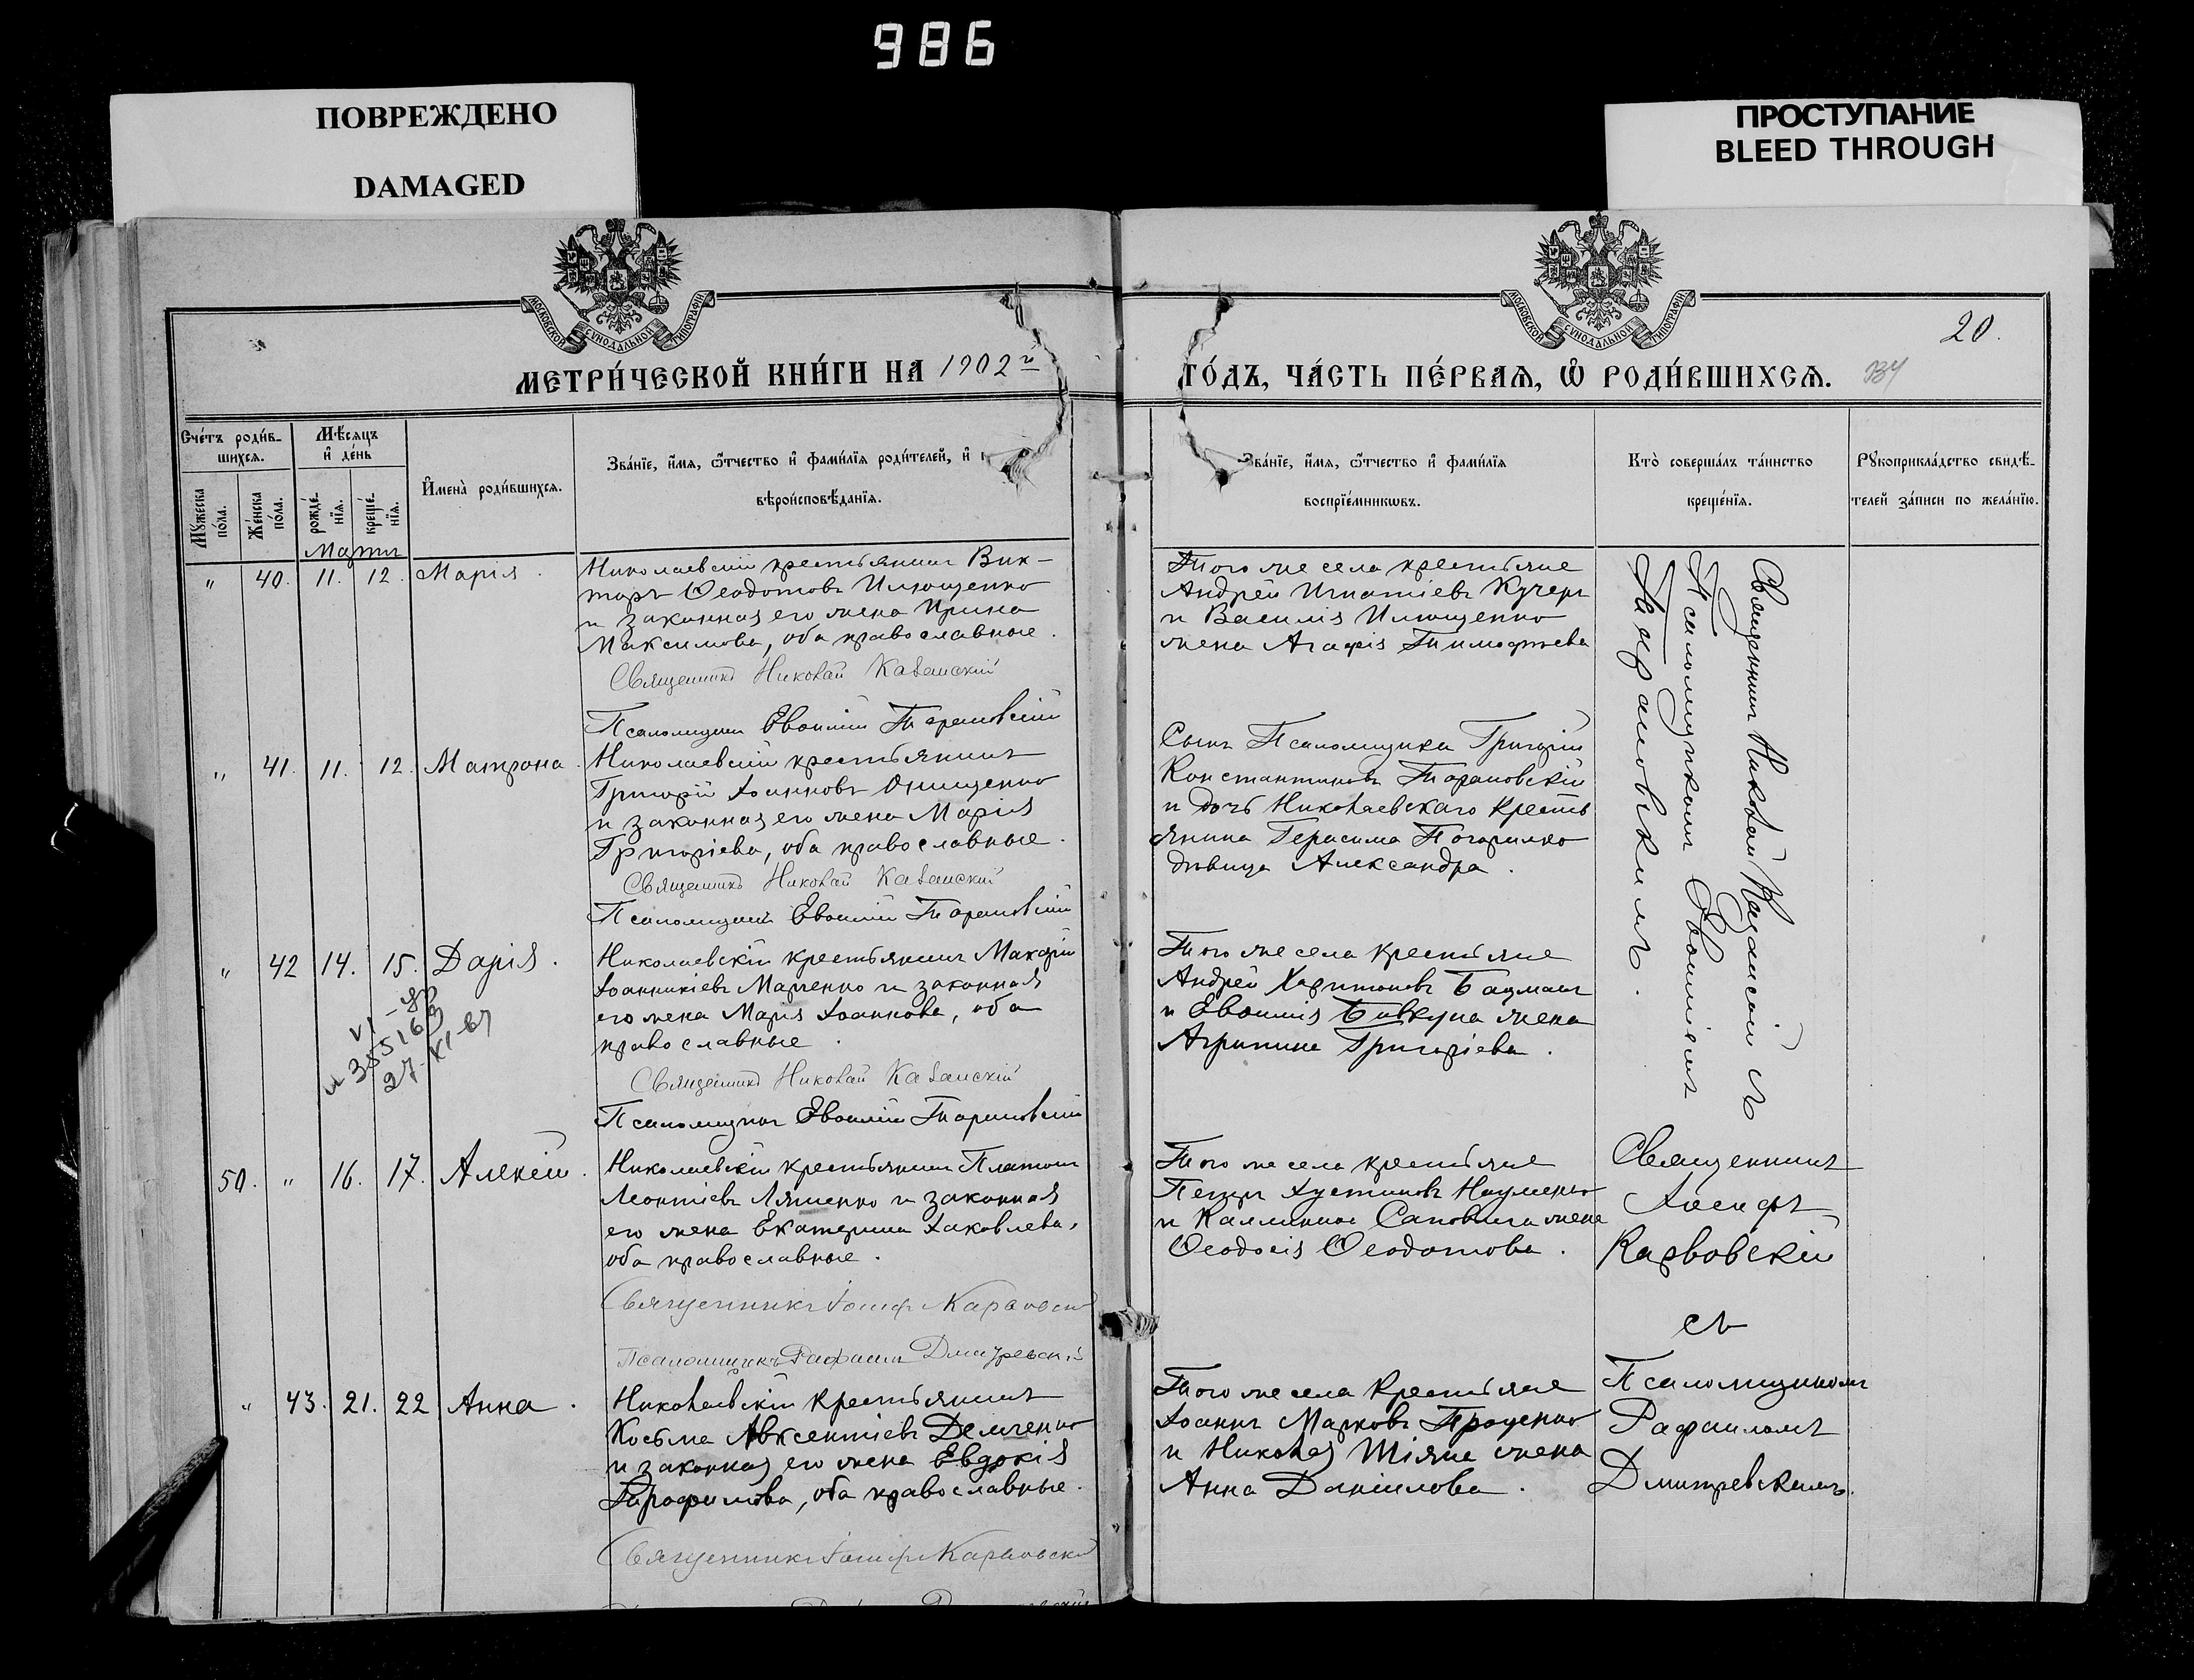 986
ПОВРЕЖДЕНО
DAMAGED
ПРОСТУПАНИЕ
BLEED THROUGH
МОСКОВСКОЙ СѴНОДАЛЬНОЙ ТИПОГРАФІИ
МОСКОВСКОЙ СѴНОДАЛЬНОЙ ТИПОГРАФІИ
20.
МЕТРИ́ЧЕСКОЙ КНИ́ГИ НА 1902 й
ГО́ДЪ, ЧА́СТЬ ПЕ́РВАѦ, Ѡ҆ РОДИ́ВШИХСѦ.
Сче́тъ роди́в-
шихсѧ.
Мѣ́сѧцъ
и҆ де́нь
Мꙋ́жеска по́ла.
Же́нска по́ла.
рожде́нїѧ.
креще́нїѧ.
И҆мена̀ роди́вшихсѧ.
Зва́нїе, и҆́мѧ, ѻ҆́тчество и҆ фами́лїѧ роди́телей, и҆
вѣроисповѣ́данїѧ.
Зва́нїе, и҆́мѧ, ѻ҆́тчество и҆ фами́лїѧ
воспрїе́мникѡвъ.
Кто̀ соверша́лъ та́инство
креще́нїѧ.
Рꙋкоприкла́дство свидѣ́-
телей за́писи по жела́нїю.
Мартъ
" 40. 11. 12. Марія.
Николаевскій крестьянинъ Вик-
торъ Ѳеодотовъ Илющенко
и законная его жена Ирина
Максимова, оба православные.
Священникъ Николай Казанскій
Псаломщикъ Евѳимій Тарановскій
Того же села крестьяне
Андрей Игнатіевъ Кучеръ
и Василія Илющенко
жена Агафія Тимофѣева
Священникъ Николай Казанскій съ
Псаломщикомъ Евѳиміемъ
Тарановскимъ.
" 41. 11. 12. Матрона.
Николаевскій крестьянинъ
Григорій Іоанновъ Онищенко
и законная его жена Марія
Григоріева, оба православные.
Священникъ Николай Казанскій
Псаломщикъ Евѳимій Тарановскій
Сынъ Псаломщика Григорій
Константиновъ Тарановскій
и дочь Николаевскаго кресть
янина Герасима Погорилко
дѣвица Александра.
" 42 14. 15. Дарія.
Николаевскій крестьянинъ Макарій
Іоанникіевъ Марченко и законная
его жена Марія Іоаннова, оба
православные.
Священникъ Николай Казанскій
Псаломщикъ Евѳимій Тарановскій
Того же села крестьяне
Андрей Харитоновъ Бауманъ
и Евѳимія Бивкуна жена
Агрипина Григоріева.
50. " 16. 17. Алексій.
Николаевскій крестьянинъ Платонъ
Леонтіевъ Ляшенко и законная
его жена Екатерина Іаковлева,
оба православные.
Священникъ Іосифъ Карвовскій
Псаломщикъ Рафаилъ Дмитревскій
Того же села крестьяне
Петръ Іустиновъ Науменко
и Каллиника Сановича жена
Ѳеодосія Ѳеодотова.
Священникъ
Іосифъ
Карвовскій
съ
Псаломщикомъ
Рафаиломъ
Дмитревскимъ.
" 43. 21. 22 Анна.
Николаевскій крестьянинъ
Косьма Авксентіевъ Демченко
и законная его жена Евдокія
Трофимова, оба православные.
Священникъ Іосифъ Карвовскій
Того же села крестьяне
Іоаннъ Марковъ Проценко
и Николая Шіяна жена
Анна Даніилова.